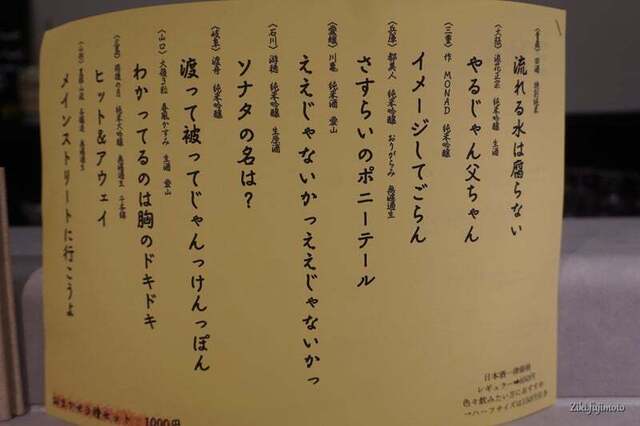 流れる水は腐らない
(大阪) 浪花正宗 純米吟醸 生酒
やるじゃん父ちゃん
(三重) 作 MONAD 純米吟醸
イメージしてごらん
(兵庫) 都美人 純米吟醸 おりがらみ 無濾過生
さすらいのポニーテール
(愛媛) 川亀 純米酒 雄山
ええじゃないかっええじゃないかっ
(石川) 遊穂 純米吟醸 生原酒
ソナタの名は?
(岐阜) 渡舟 純米吟醸
渡って被ってじゃんっけんっぽん
(山口) 大嶺3粒 春風かすみ 生酒 雄山
わかってるのは胸のドキドキ
純米大吟醸 無濾過生
ヒット&アウェイ
メインストリートに行こうよ
日本酒一律価格
色々飲みたい方におすすめ
1000円
Ziki.fijimoto